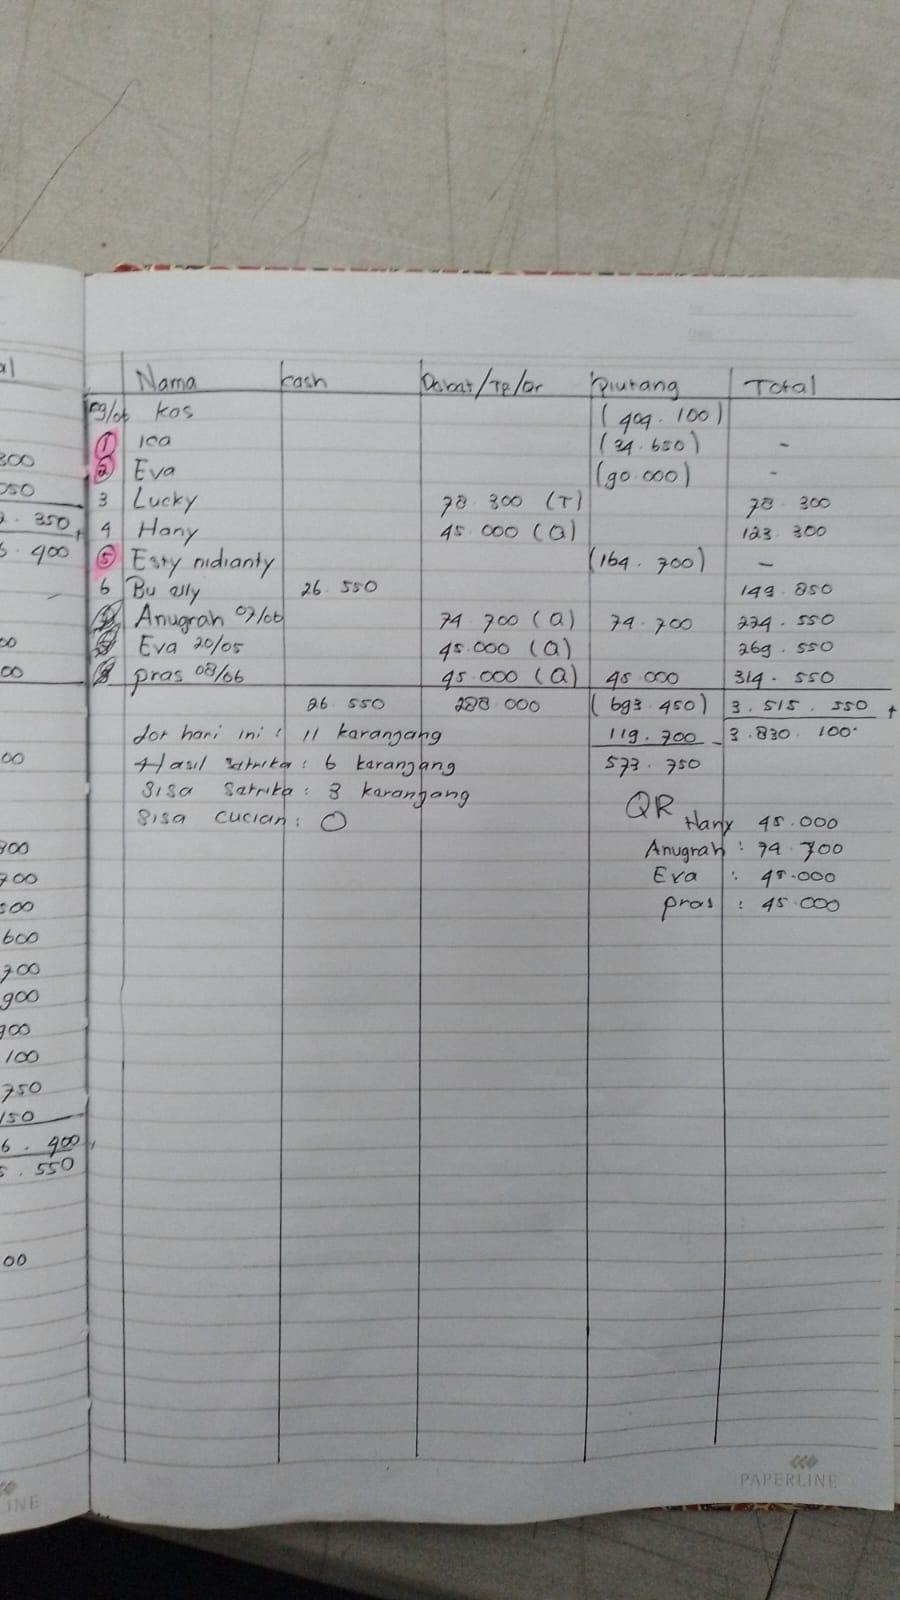 Nama cash Debet/TF/Qr piutang Total
09/06 kas (404.100)
1 ica (34.650) -
2 Eva (90.000) -
3 Lucky 78.300 (T) 78.300
4 Hany 45.000 (Q) 123.300
5 Esty nidianty (164.700) -
6 Bu elly 26.550 149.850
Anugrah 07/06 74.700 (Q) 74.700 224.550
Eva 20/05 45.000 (Q) 269.550
pras 08/06 45.000 (Q) 45.000 314.550
26.550 288.000 (693.450) 3.515.550 +
dor hari ini : 11 karangang 119.700 - 3.830.100
Hasil setrika : 6 karangang 573.750
Sisa Setrika : 3 karangang
Sisa cucian : 0
QR Hany 45.000
Anugrah : 74.700
Eva : 45.000
pras : 45.000
PAPERLINE